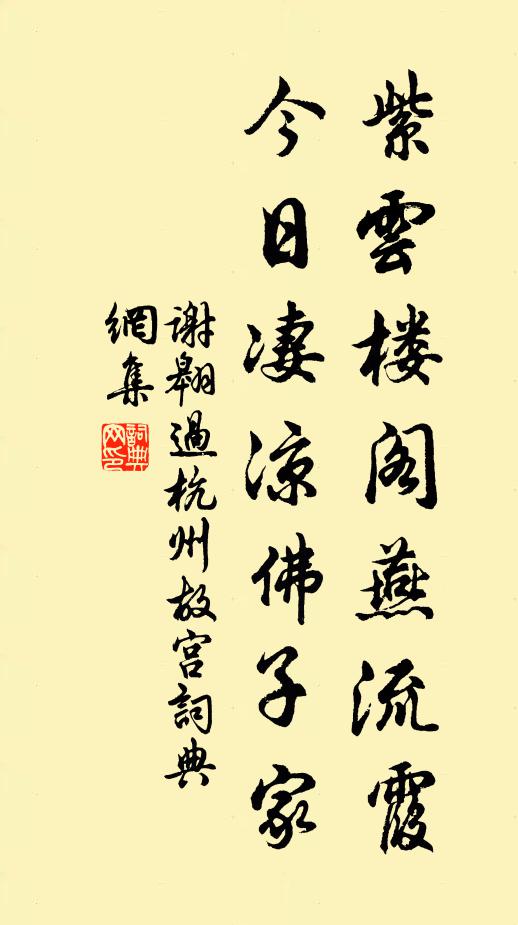 紫雲楼阁燕流霞
今日凄涼佛子家
謝翱過杭州故宮詞典
網集
詞典網印